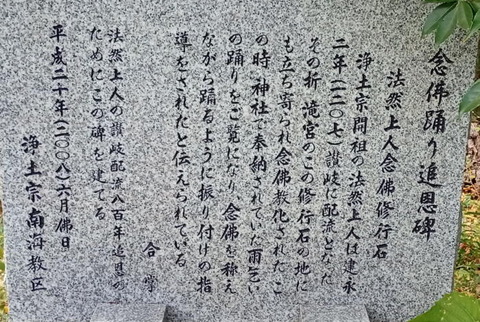 念佛踊り追恩碑
法然上人念佛修行石
浄土宗開祖の法然上人は建永
二年(一二〇七)讃岐に配流となた
その折 滝宮のこの修行石の地に
も立ち寄られ念佛教化された こ
の時 神社で奉納されていた雨乞い
の踊りをご覧になり 念佛を称え
ながら踊るように振り付けの指
導をされたと伝えられている
合掌
法然上人の讃岐配流八百年追恩の
ためにこの碑を建てる
平成二十年(二〇〇八)六月佛日
浄土宗南海教区